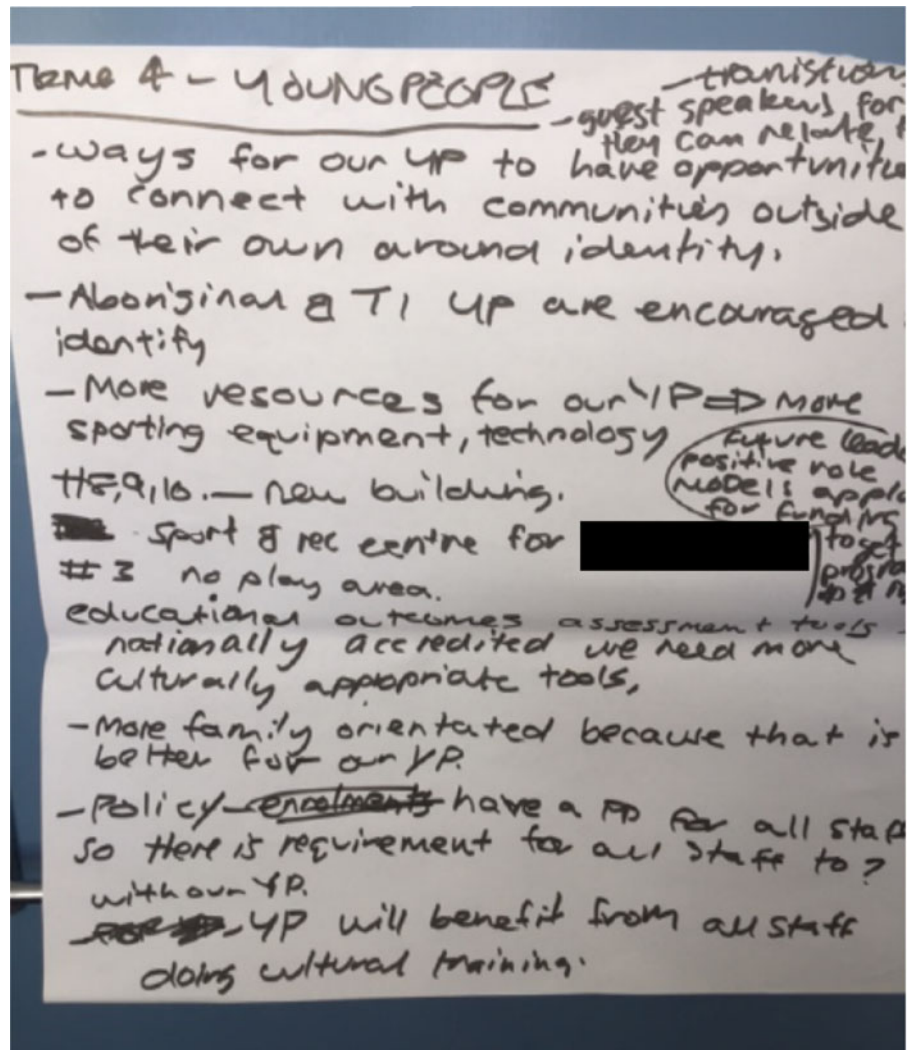 Theme 4 - YOUNG PEOPLE
- guest speakers for
they can relate,
- ways for our YP to have opportunities
to connect with communities outside
of their own around identity.
- Aboriginal & TI YP are encouraged
identify
- More resources for our YP => More
sporting equipment, technology
Future
positive role
models
for funding
#8,9,10. - new building.
sport & rec centre for
to get
# 3 no play area.
educational outcomes assessment tools
nationally accredited we need more
culturally appropriate tools,
- More family orientated because that is
better for our YP.
- Policy - enrolments have a PD for all staff
so there is requirement for all staff to?
with our YP.
- YP will benefit from all staff
doing cultural training.